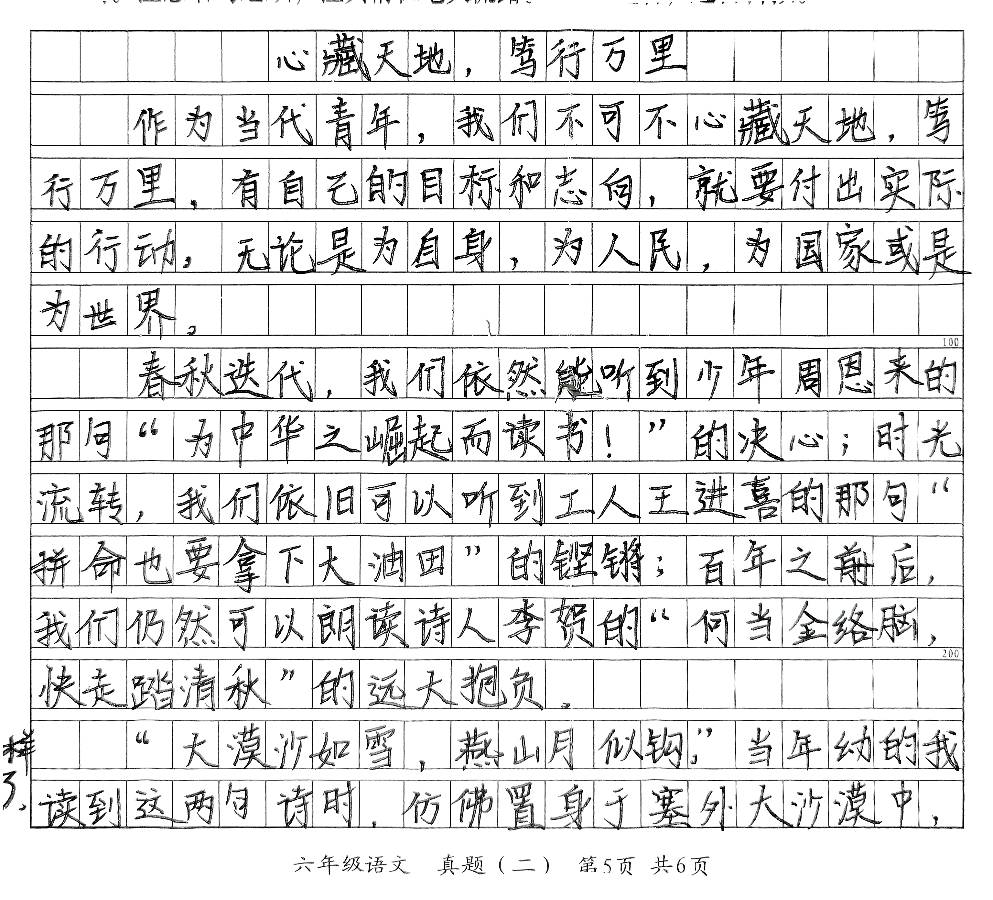 心藏天地，笃行万里
作为当代青年，我们不可不心藏天地，笃
行万里，有自己的目标和志向，就要付出实际
的行动。无论是为自身，为人民，为国家或是
为世界。
100
春秋迭代，我们依然能听到少年周恩来的
那句“为中华之崛起而读书！”的决心；时光
流转，我们依旧可以听到工人王进喜的那句“
拼命也要拿下大油田”的铿锵；百年之前后，
我们仍然可以朗读诗人李贺的“何当金络脑，
200
快走踏清秋”的远大抱负。
“大漠沙如雪，燕山月似钩。”当年幼的我
读到这两句诗时，仿佛置身于塞外大沙漠中，
六年级语文 真题（二） 第5页 共6页